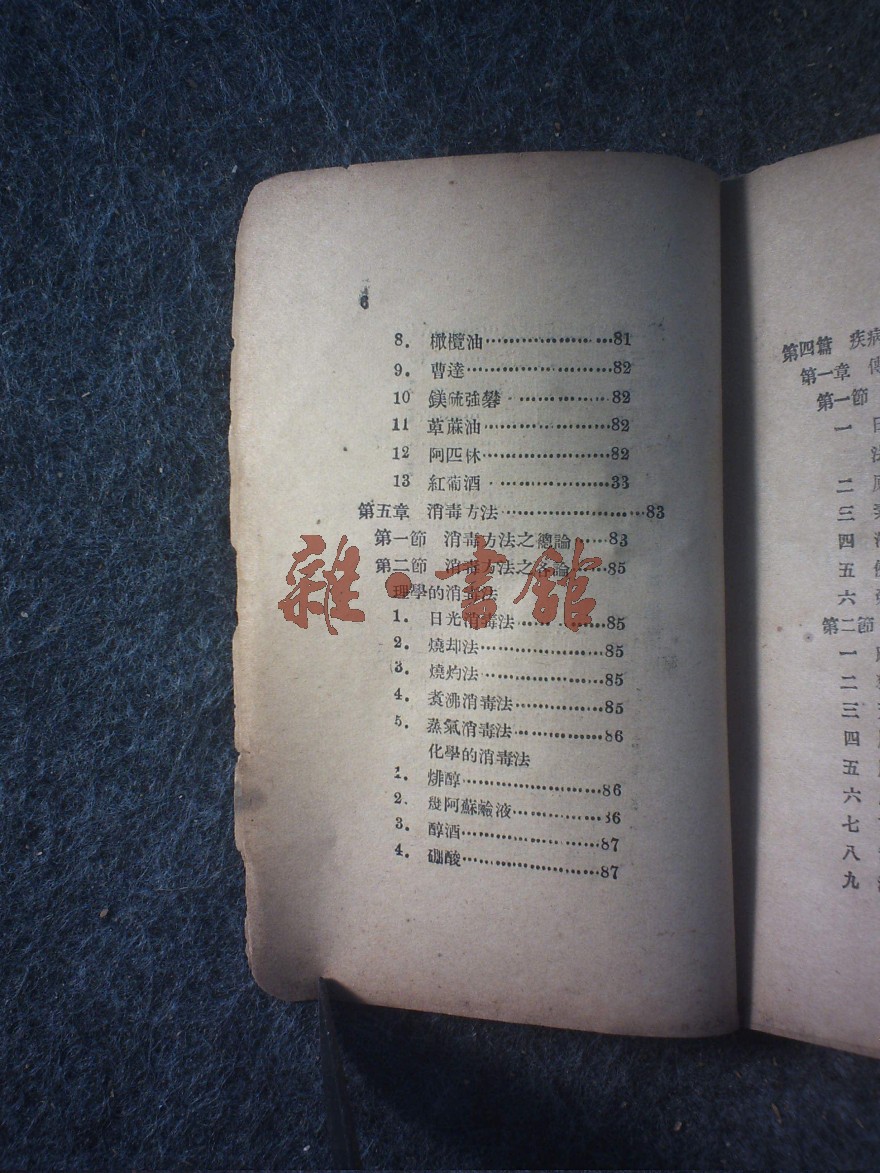 6
8. 橄欖油··················81
9. 曹達··················82
10 鎂硫強礬··················82
11 萆蔴油··················82
12 阿匹林··················82
13 紅葡酒··················33
第五章 消毒方法··················83
第一節 消毒方法之總論·····83
第二節 消毒方法之各論·····85
理學的消毒法
1. 日光消毒法··················85
2. 燒却法··················85
3. 燒灼法··················85
4. 煮沸消毒法··················85
5. 蒸氣消毒法··················86
化學的消毒法
1. 焿醇··················86
2. 幾阿蘇鹼液··················36
3. 醇酒··················87
4. 硼酸··················87
雜·書館
第四篇 疾病
第一章 傳
第一節
一
二
三
四
五
六
第二節
一
二
三
四
五
六
七
八
九